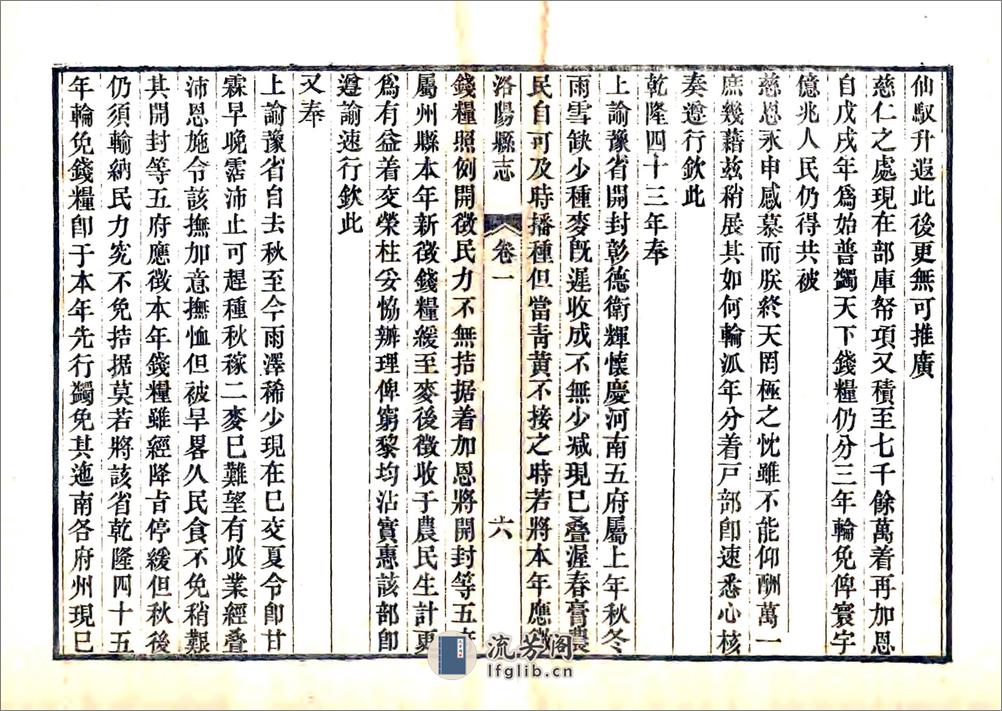 仙馭升遐此後更無可推廣
慈仁之處現在部庫帑項又積至七千餘萬着再加恩
自戊戌年爲始普蠲天下錢糧仍分三年輪免俾寰宇
億兆人民仍得共被
慈恩永申感慕而朕終天罔極之忱雖不能仰酬萬一
庶幾藉兹稍展其如何輪派年分着戸部卽速悉心核
奏遵行欽此
乾隆四十三年奉
上諭豫省開封彰德衛輝懷慶河南五府屬上年秋冬
雨雪缺少種麥旣遲收成不無少减現已叠渥春膏農
民自可及時播種但當青黃不接之時若將本年應徵
洛陽縣志 卷一 六
錢糧照例開徵民力不無拮据着加恩將開封等五府
屬州縣本年新徵錢糧緩至麥後徵收于農民生計更
爲有益着交榮柱妥恊辦理俾窮黎均沾實惠該部卽
遵諭速行欽此
又奉
上諭豫省自去秋至今雨澤稀少現在已交夏令卽甘
霖早晚霑沛止可趕種秋稼二麥已難望有收業經叠
沛恩施令該撫加意撫恤但被旱畧久民食不免稍艱
其開封等五府應徵本年錢糧雖經降旨停緩但秋後
仍須輸納民力究不免拮据莫若將該省乾隆四十五
年輪免錢糧卽于本年先行蠲免其迤南各府州現已
流芳閣
lfglib.cn